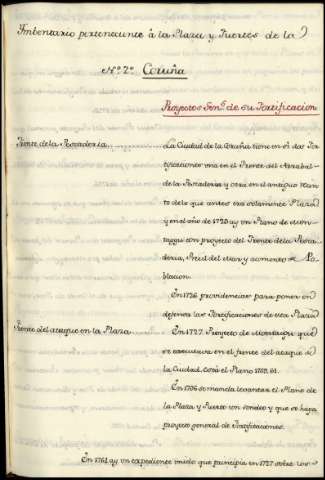 Imbentario perteneciente á la Plaza y Puertos de la
Nº 2º Coruña
Proyectos Genˢ de su Fortificacion
Frente de la Pescaderia
La Ciudad de la Coruña tiene en sí dos For
tificaciones una en el Frente del Arrabal
de la Pescaderia y otra en el antiguo Recin
to de lo que antes era solamente Plaza
y en el año de 1720 ay un Plano de Mon
taygu con proyecto del Frente de la Pesca
deria, Perfil del Muro y aumento de Po
blacion.
En 1726 providencias para poner en
defensa las Fortificaciones de esta Plaza
Frente del ataque en la Plaza
En 1727 Proyecto de Montaigu que
se executava en el frente del ataque de
la Ciudad, Costa el Plano
En 1756 se manda levantar el Plano de
la Plaza y Puerto con sondeo y que se haga
proyecto general de Fortificaciones.
En 1761 ay un expediente unido que principia en 1727 sobre